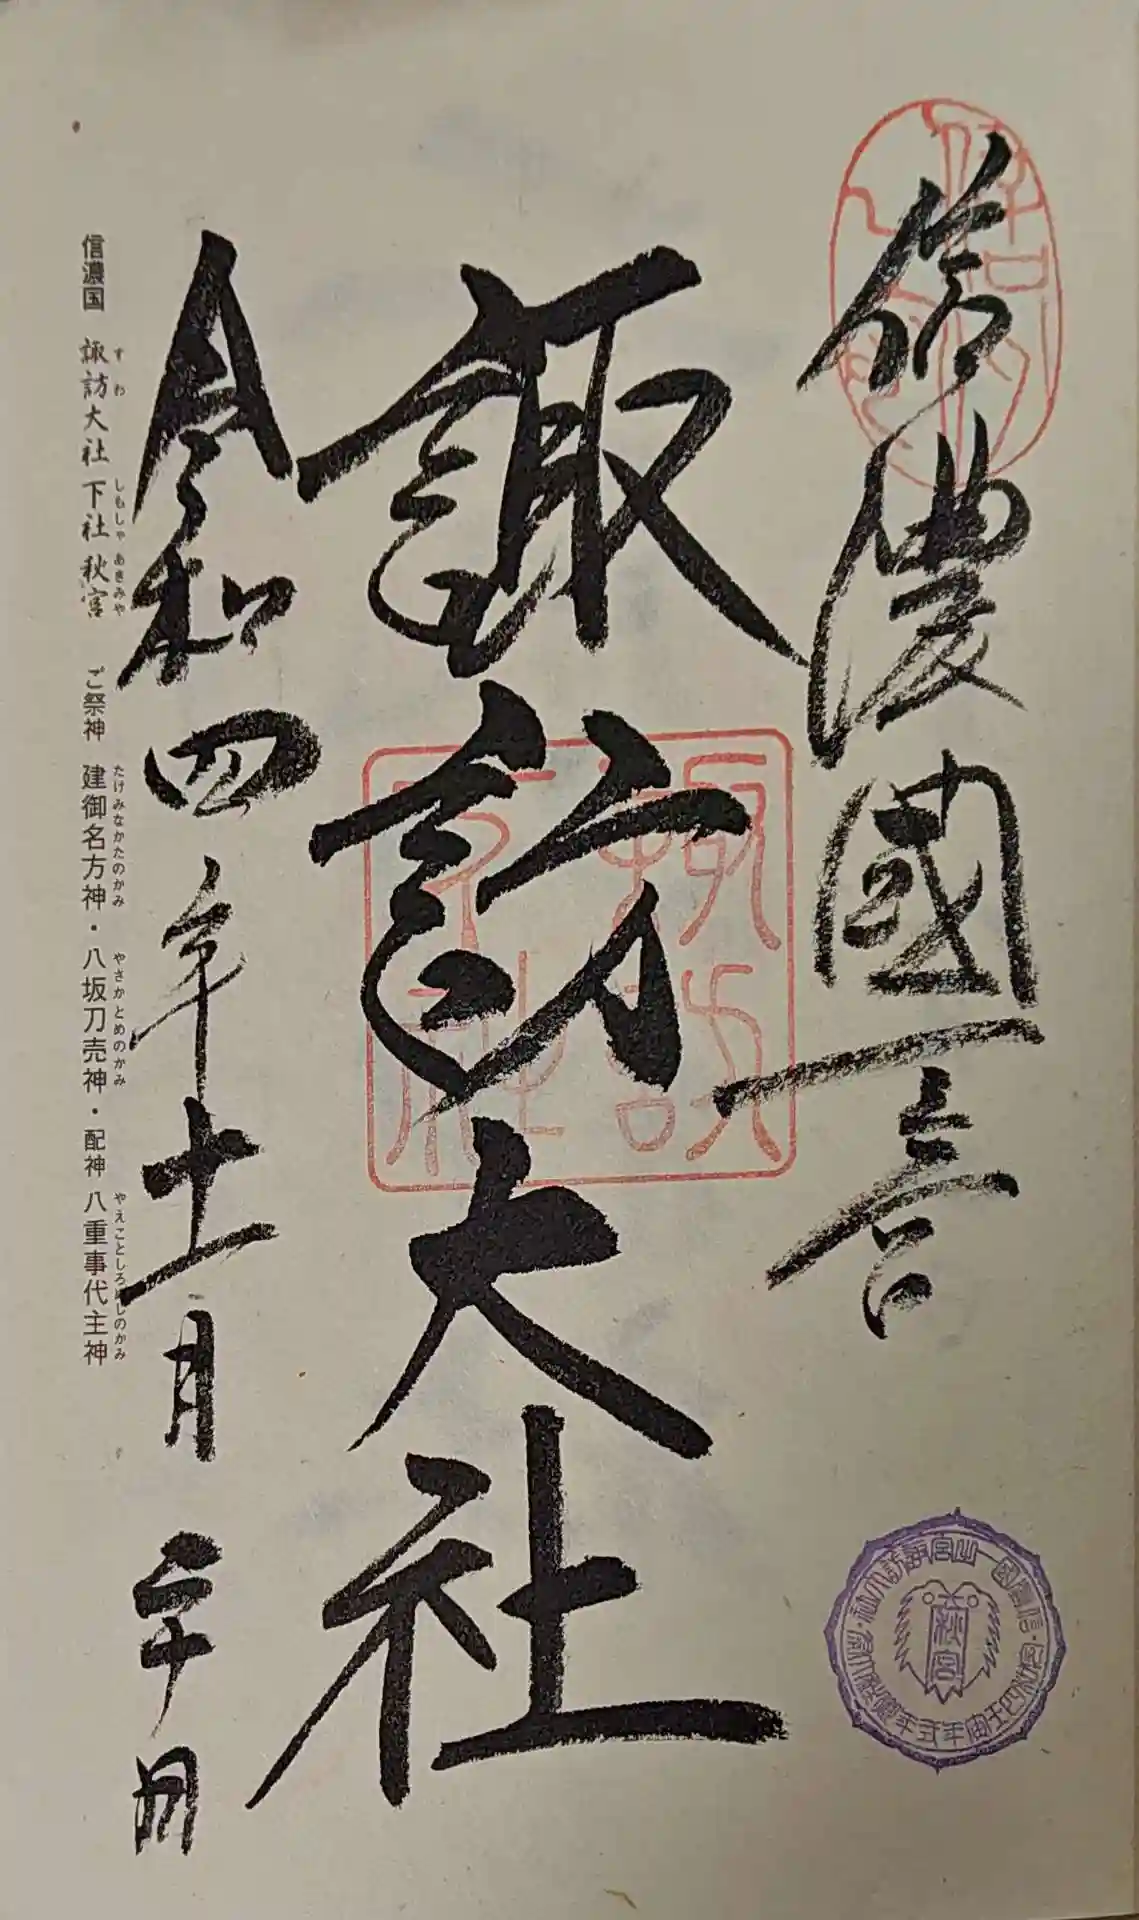 信濃國一宮
諏訪大社
令和四年十一月二十日
信濃国 諏訪大社 下社 秋宮 ご祭神 建御名方神・八坂刀売神・配神 八重事代主神
すわ しもしゃ あきみや たけみなかたのかみ やさかとめのかみ やえことしろぬしのかみ
秋宮